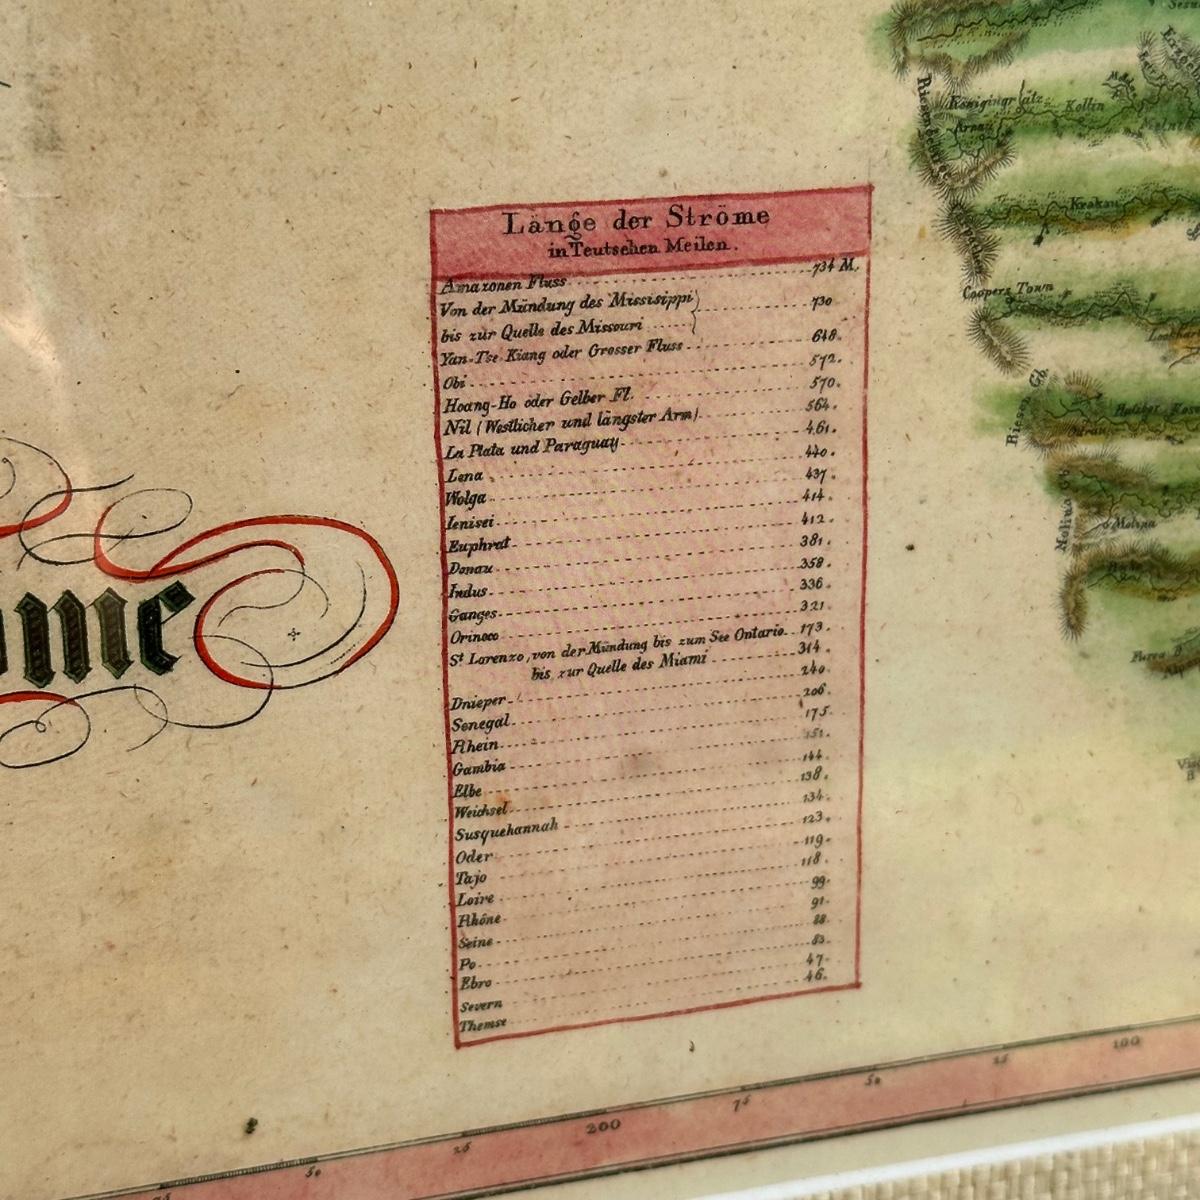 Länge der Ströme
in Teutschen Meilen.
Amazonen Fluss 734 M.
Von der Mündung des Missisippi
bis zur Quelle des Missouri 730
Yan-Tse-Kiang oder Grosser Fluss 648.
Obi 572.
Hoang-Ho oder Gelber Fl. 570.
Nil (Westlicher und längster Arm) 564.
La Plata und Paraguay 461.
Lena 440.
Wolga 437.
Ienisei 414.
Euphrat 412.
Donau 381.
Indus 358.
Ganges 336.
Orinoco 321.
St Lorenzo, von der Mündung bis zum See Ontario 173.
bis zur Quelle des Miami 314.
Dnieper 240.
Senegal 206.
Rhein 175.
Gambia 151.
Elbe 144.
Weichsel 138.
Susquehannah 134.
Oder 123.
Tajo 119.
Loire 118.
Rhône 99.
Seine 91.
Po 88.
Ebro 83.
Severn 47.
Themse 46.
ome
Königingrätz
Kollin
Arnau
Krakau
Coopers Town
Riesen Gb.
Molina
50
25
200
75
50
25
100